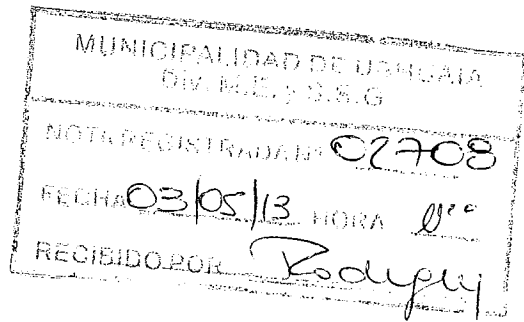 MUNICIPALIDAD DE USHUAIA
Div. M.E. y S.S.G
NOTA REGISTRADA Nº 02708
FECHA 03/05/13 HORA
RECIBIDO POR